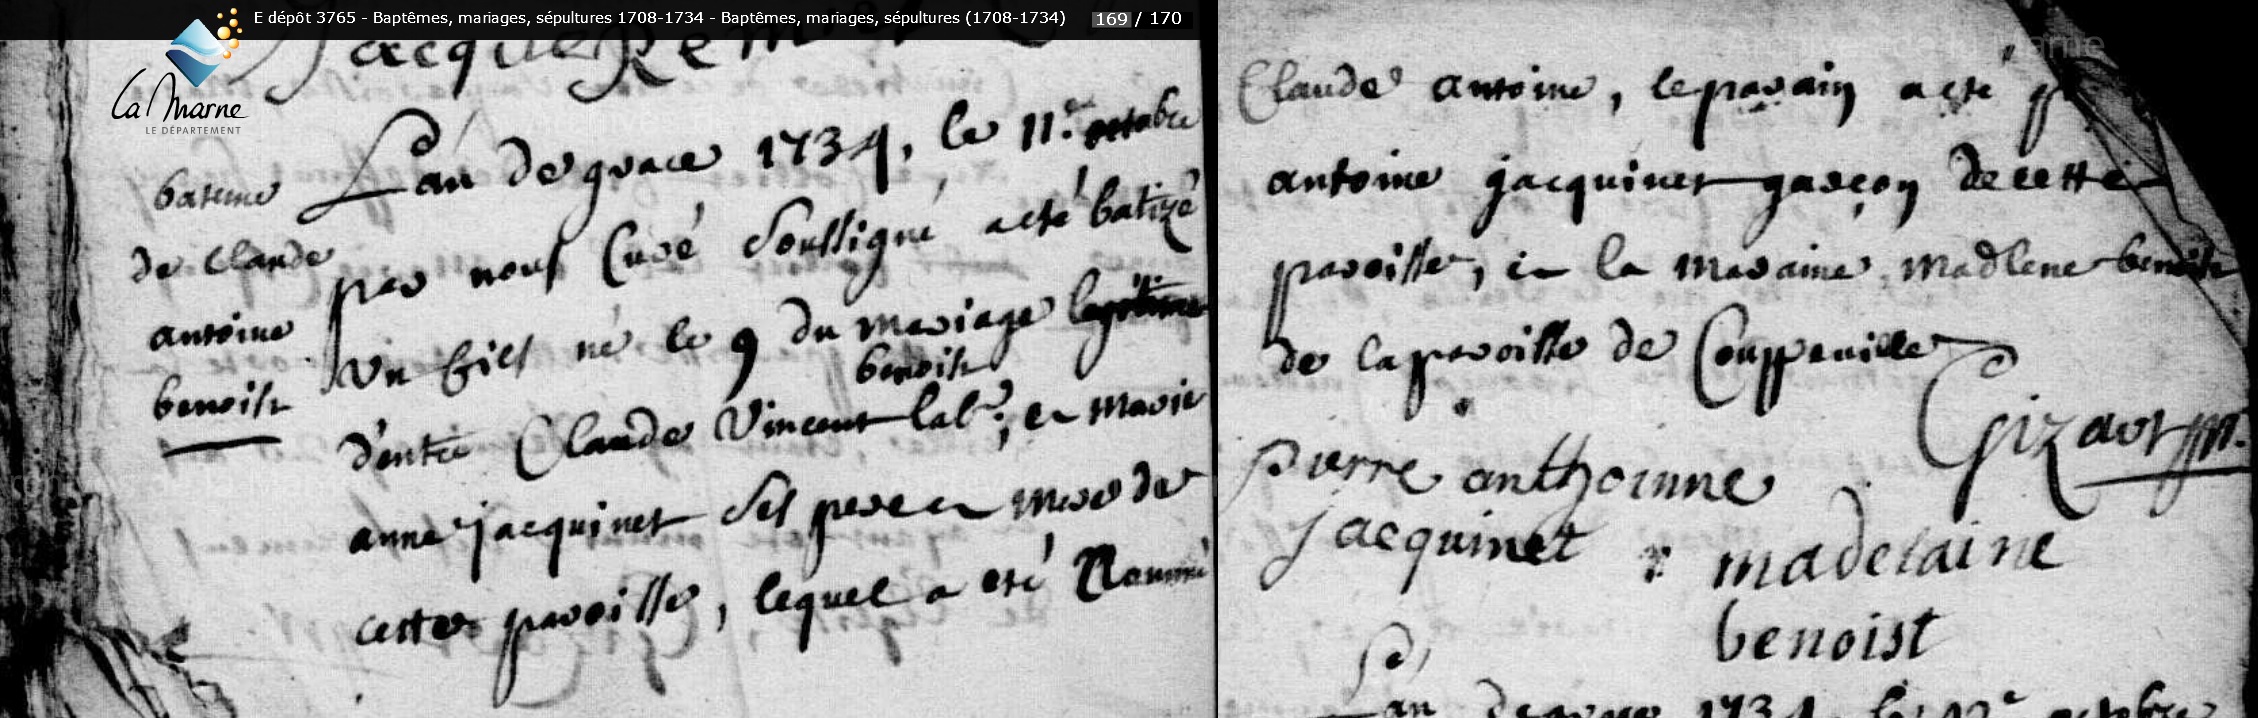 E dépôt 3765 - Baptêmes, mariages, sépultures 1708-1734 - Baptêmes, mariages, sépultures (1708-1734) 169 / 170
La Marne
LE DÉPARTEMENT
bateme
de Claude
antoine
benoist
L'an de grace 1734, le 11.e octobre
par nous Curé soussigné a eté batizé
un fils né le 9 du mariage legitime
d'entre Claude Vincent benoist lab.r, et marie
anne jacquinet ses pere et mere de
cette paroisse, lequel a eté Nommé
Claude antoine, le parain a eté
antoine jacquinet garçon de cette
paroisse, et la maraine madlene benoist
de la paroisse de Couppeville
Gizart
pierre anthoinne
jacquinet
madelaine
benoist
L'an de grace 1734, le 12.e octobre